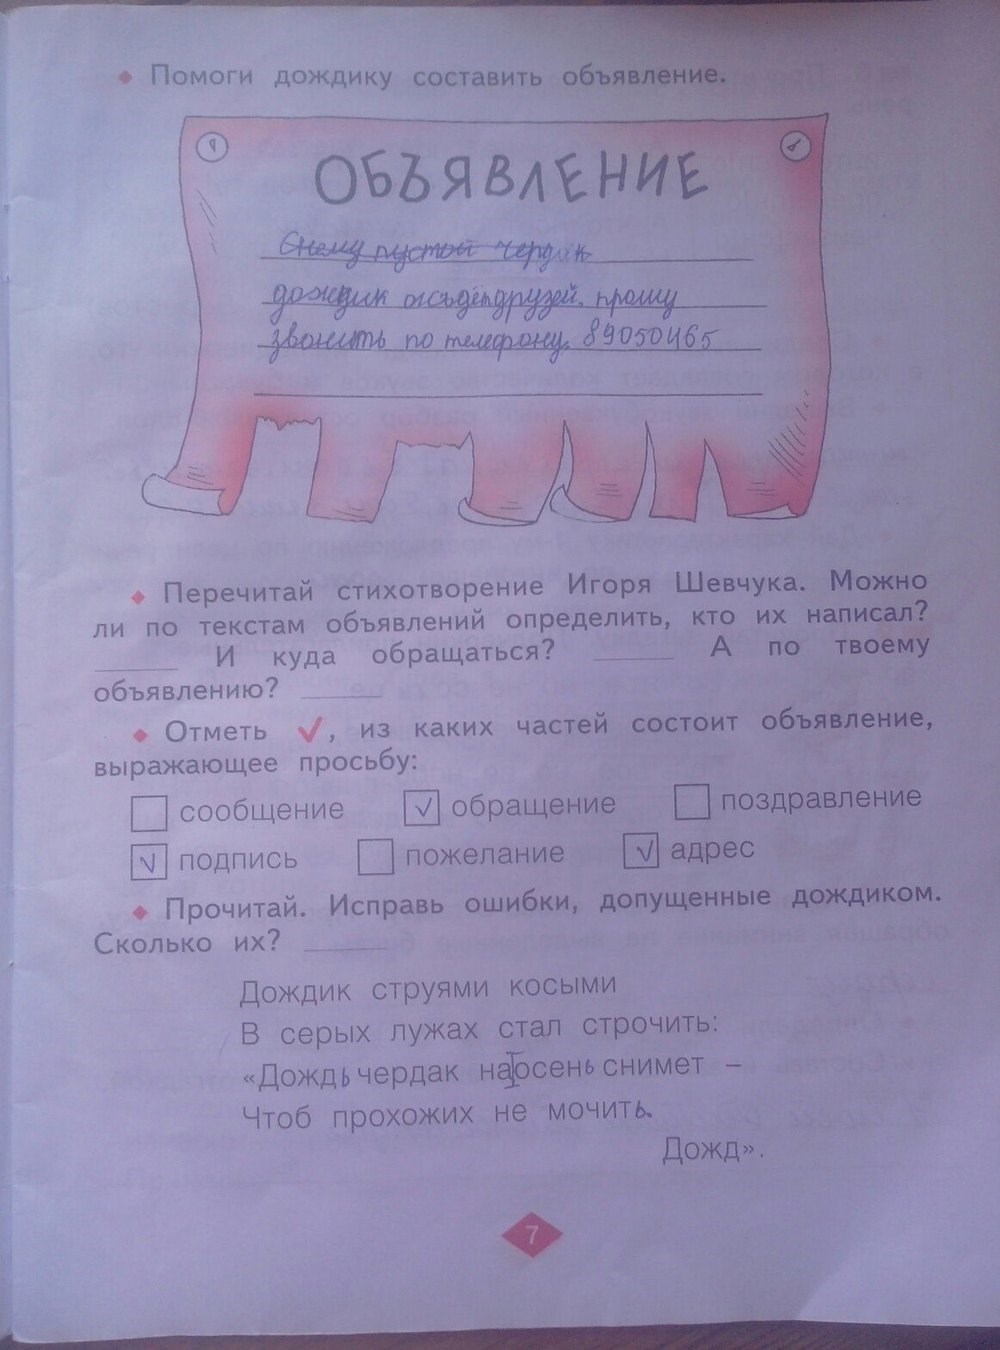 Помоги дождику составить объявление.
ОБЪЯВЛЕНИЕ
Сниму пустой чердак
дождик друзей, прошу
звонить по телефону. 89050465
Перечитай стихотворение Игоря Шевчука. Можно
ли по текстам объявлений определить, кто их написал?
И куда обращаться? А по твоему
объявлению?
Отметь ✓, из каких частей состоит объявление,
выражающее просьбу:
сообщение ✓ обращение поздравление
✓ подпись пожелание ✓ адрес
Прочитай. Исправь ошибки, допущенные дождиком.
Сколько их?
Дождик струями косыми
В серых лужах стал строчить:
«Дождь чердак на осень снимет –
Чтоб прохожих не мочить.
Дожд».
7